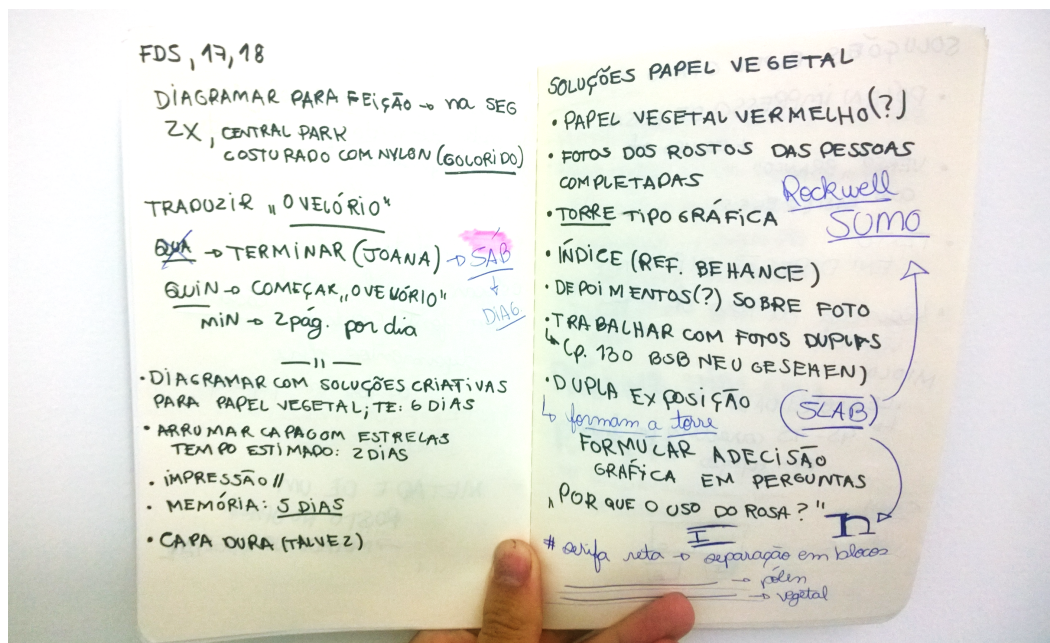 FDS, 17, 18
DIAGRAMAR PARA FEIÇÃO → NA SEG
2X, CENTRAL PARK
COSTURADO COM NYLON (COLORIDO)
TRADUZIR „O VELÓRIO"
QUA → TERMINAR (JOANA) → SÁB
↓
DIAG
QUIN → COMEÇAR „O VELÓRIO"
MIN → 2 pág. por dia
—11—
• DIAGRAMAR COM SOLUÇÕES CRIATIVAS
PARA PAPEL VEGETAL; TE: 6 DIAS
• ARRUMAR CAPA COM ESTRELAS
TEMPO ESTIMADO: 2 DIAS
• IMPRESSÃO //
• MEMÓRIA: 5 DIAS
• CAPA DURA (TALVEZ)
SOLUÇÕES PAPEL VEGETAL
• PAPEL VEGETAL VERMELHO (?)
• FOTOS DOS ROSTOS DAS PESSOAS
COMPLETADAS
Rockwell
• TORRE TIPOGRÁFICA SUMO
• ÍNDICE (REF. BEHANCE)
• DEPOIMENTOS (?) SOBRE FOTO
• TRABALHAR COM FOTOS DUPLAS
↳ (p. 130 BSB NEU GESEHEN)
• DUPLA EXPOSIÇÃO (SLAB)
↳ formam a torre
FORMULAR A DECISÃO
GRÁFICA EM PERGUNTAS
„POR QUE O USO DO ROSA?" n
I
# serifa reta → separação em blocos
→ pólen
→ vegetal